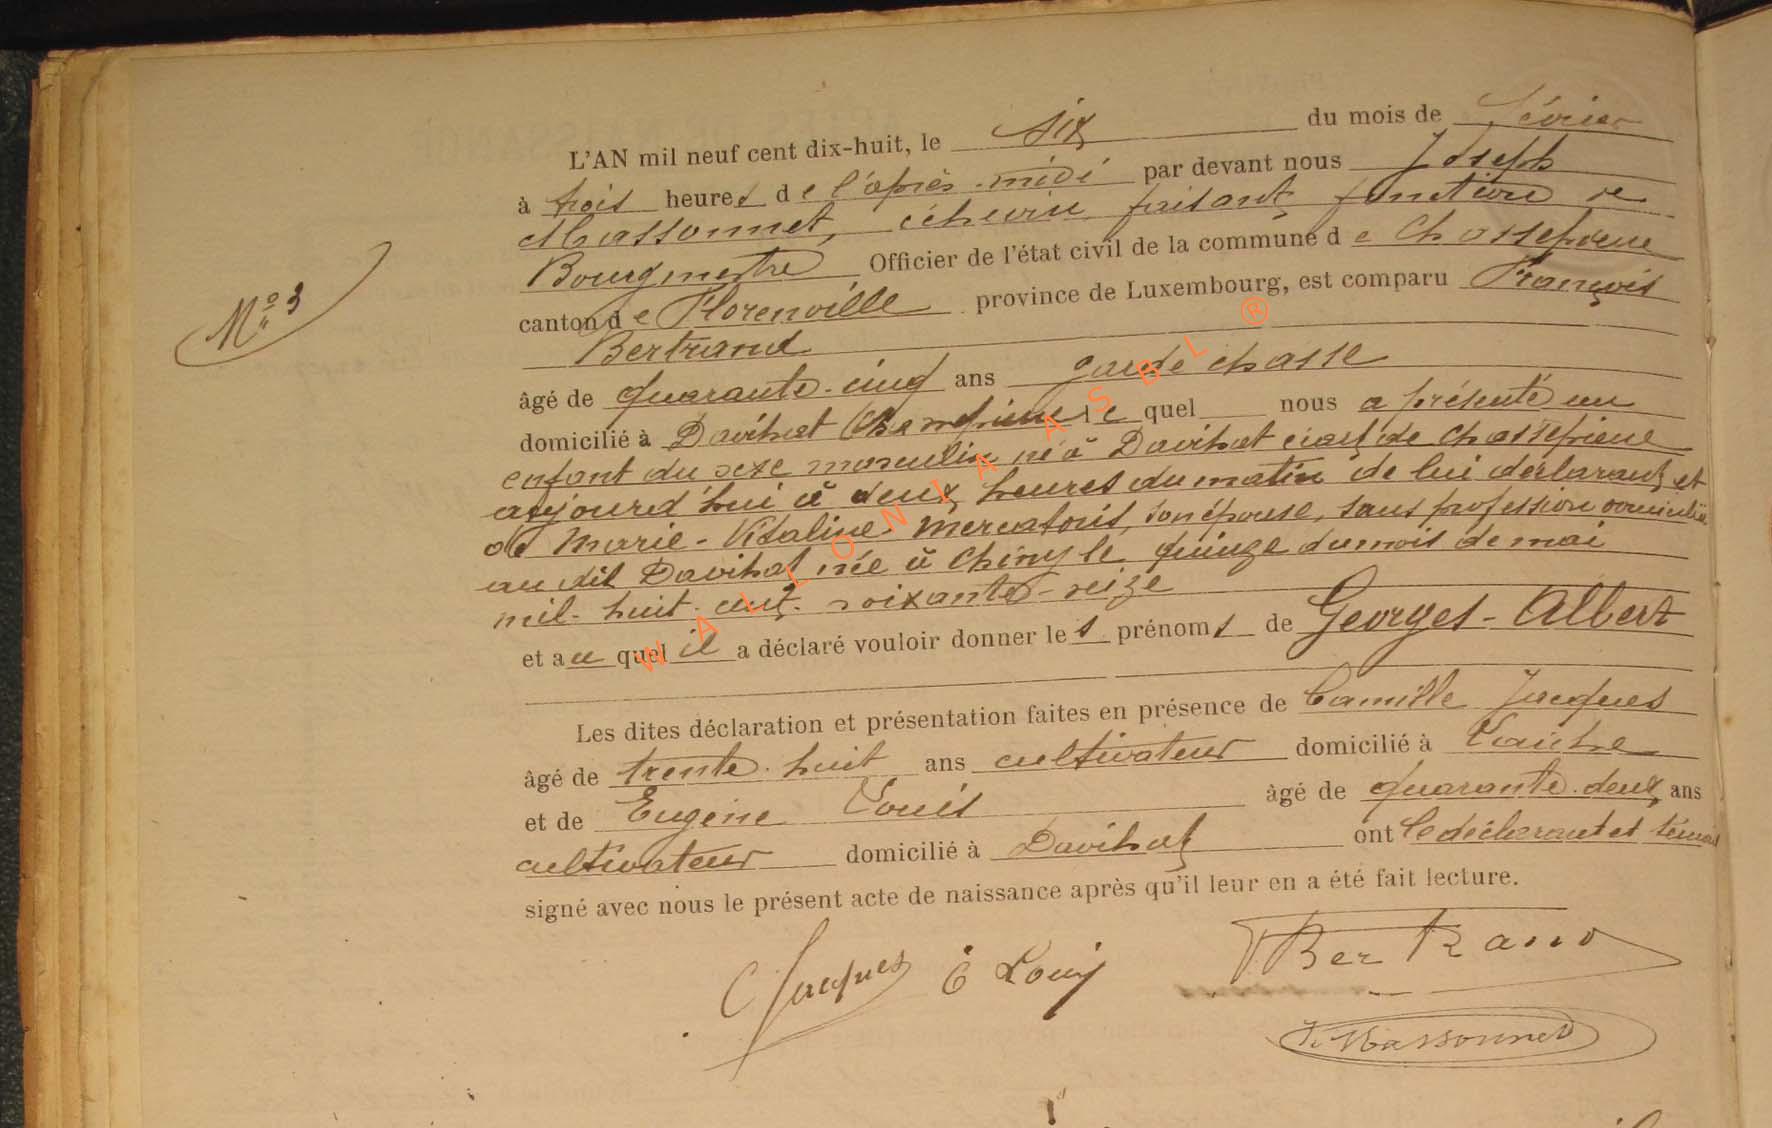 L'AN mil neuf cent dix-huit, le six du mois de février
à trois heures de l'après-midi par devant nous Joseph
Massonnet, échevin faisant fonction de
Bourgmestre Officier de l'état civil de la commune de Chassepierre
canton de Florenville province de Luxembourg, est comparu François
Nº 3
Bertrand
âgé de quarante-cinq ans garde chasse
domicilié à Davihat lequel nous a présenté un
enfant du sexe masculin né à Davihat de Chassepierre
aujourd'hui à deux heures du matin de lui déclarant et
de Marie-Vitaline Mercatoris, son épouse, sans profession domiciliée
au dit Davihat née à Chiny le quinze du mois de mai
mil-huit-cent-soixante-seize
et au quel il a déclaré vouloir donner les prénoms de Georges-Albert
Les dites déclaration et présentation faites en présence de Camille Jacques
âgé de trente-huit ans cultivateur domicilié à Laiche
et de Eugène Louis âgé de quarante-deux ans
cultivateur domicilié à Davihat ont le déclarant et témoins
signé avec nous le présent acte de naissance après qu'il leur en a été fait lecture.
C Jacques E Louis Bertrand
J. Massonnet
WALLONIA ASBL ®